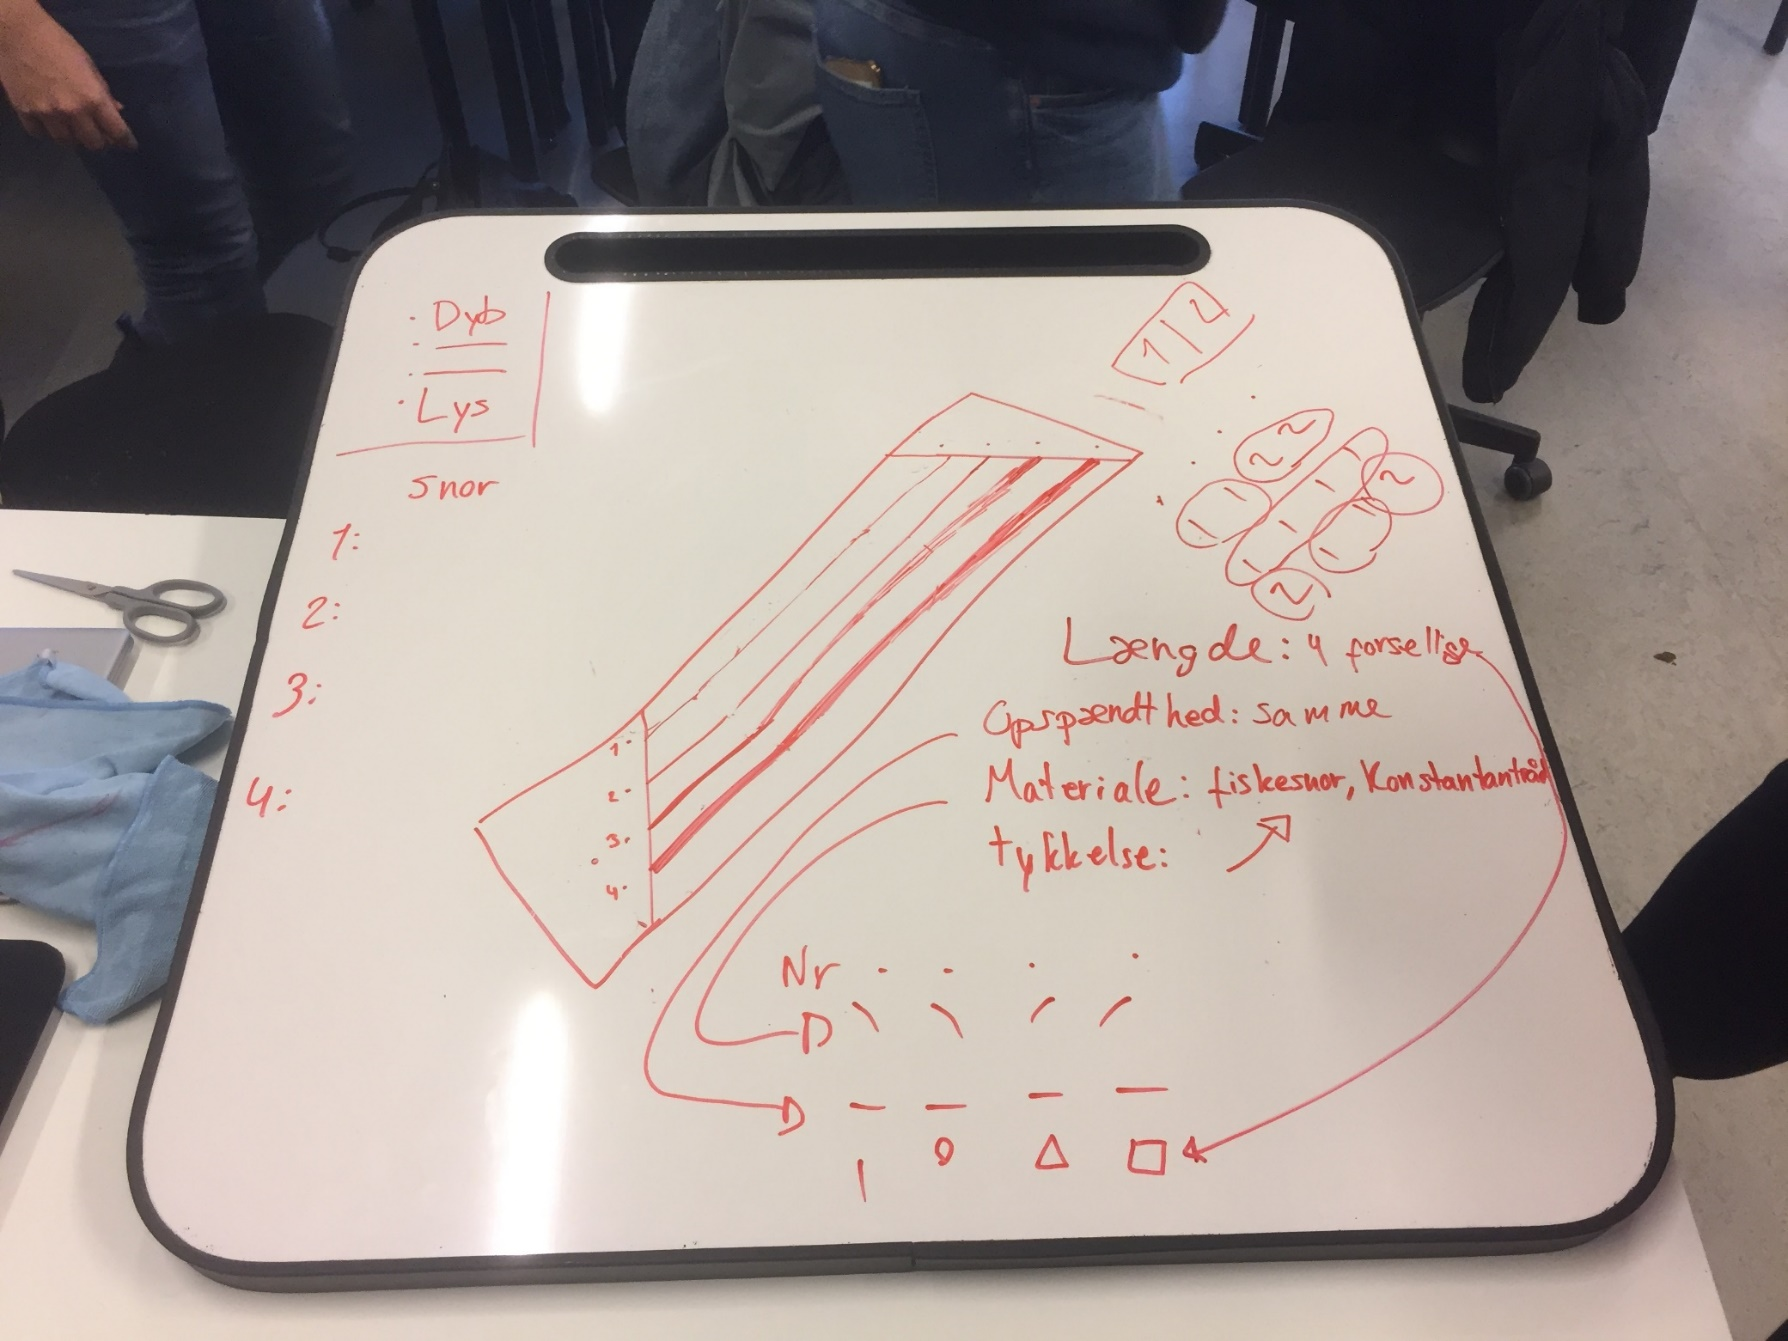 Dyb
Lys
snor
1:
2:
3:
4:
1 | 2
2 2
2
2
1
2
3
4
Længde: 4 forsellige
Opspændthed: samme
Materiale: fiskesnor, Konstantantråd
tykkelse:
Nr
D
D